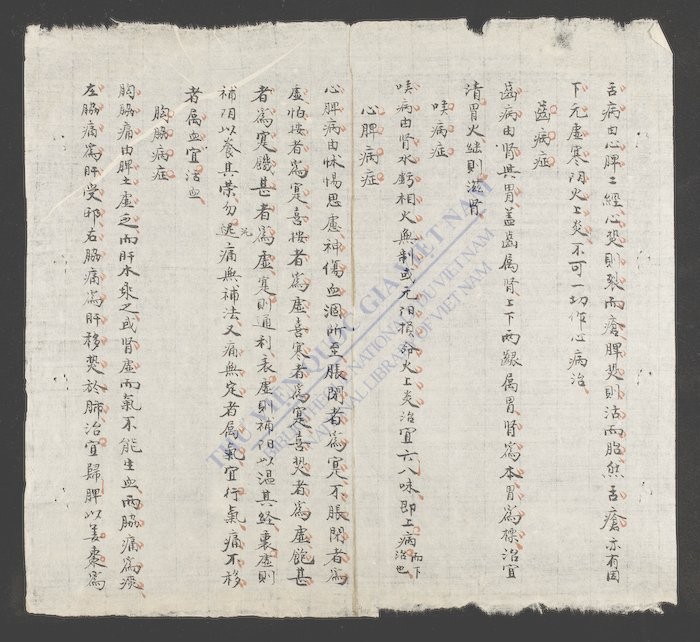 舌病由心脾二經心熱則裂而瘡脾熱則沽而胎然舌瘡亦有因
下元虛寒阳火上炎不可一切作心病治
齒病症
齒病由肾與胃盖齒属肾上下两齦属胃肾為本胃為標治宜
清胃火継則滋肾
咳病症
咳病由肾水虧相火無制或元阳損命火上炎治宜六八味即上病而下治也
心脾病症
心脾病由怵惕思慮神傷血涸所至脹閉者為寔不脹閉者為
虛怕按者為寔喜按者為虛喜寒者為寔喜熱者為虛飽甚
者為寔饑甚者為虛寔則通利表虛則補阳以温其経裏虛則
補阴以養其荣勿泥痛無補法又痛無定者属氣宜行氣痛不移
者属血宜活血
胸脇病症
胸脇痛由脾土虛乏而肝木乘之或肾虛而氣不能生血两脇痛為痰
左脇痛為肝受邪右脇痛為肝移熱於肺治宜歸脾以姜棗為
THƯ VIỆN QUỐC GIA VIỆT NAM
BIBLIOTHÈQUE NATIONALE DU VIETNAM
NATIONAL LIBRARY OF VIETNAM